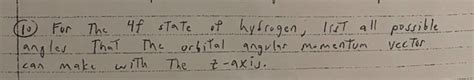 (10) For The 4f state of hydrogen, list all possible
angles That The orbital angular momentum vector
can make with The z-axis.